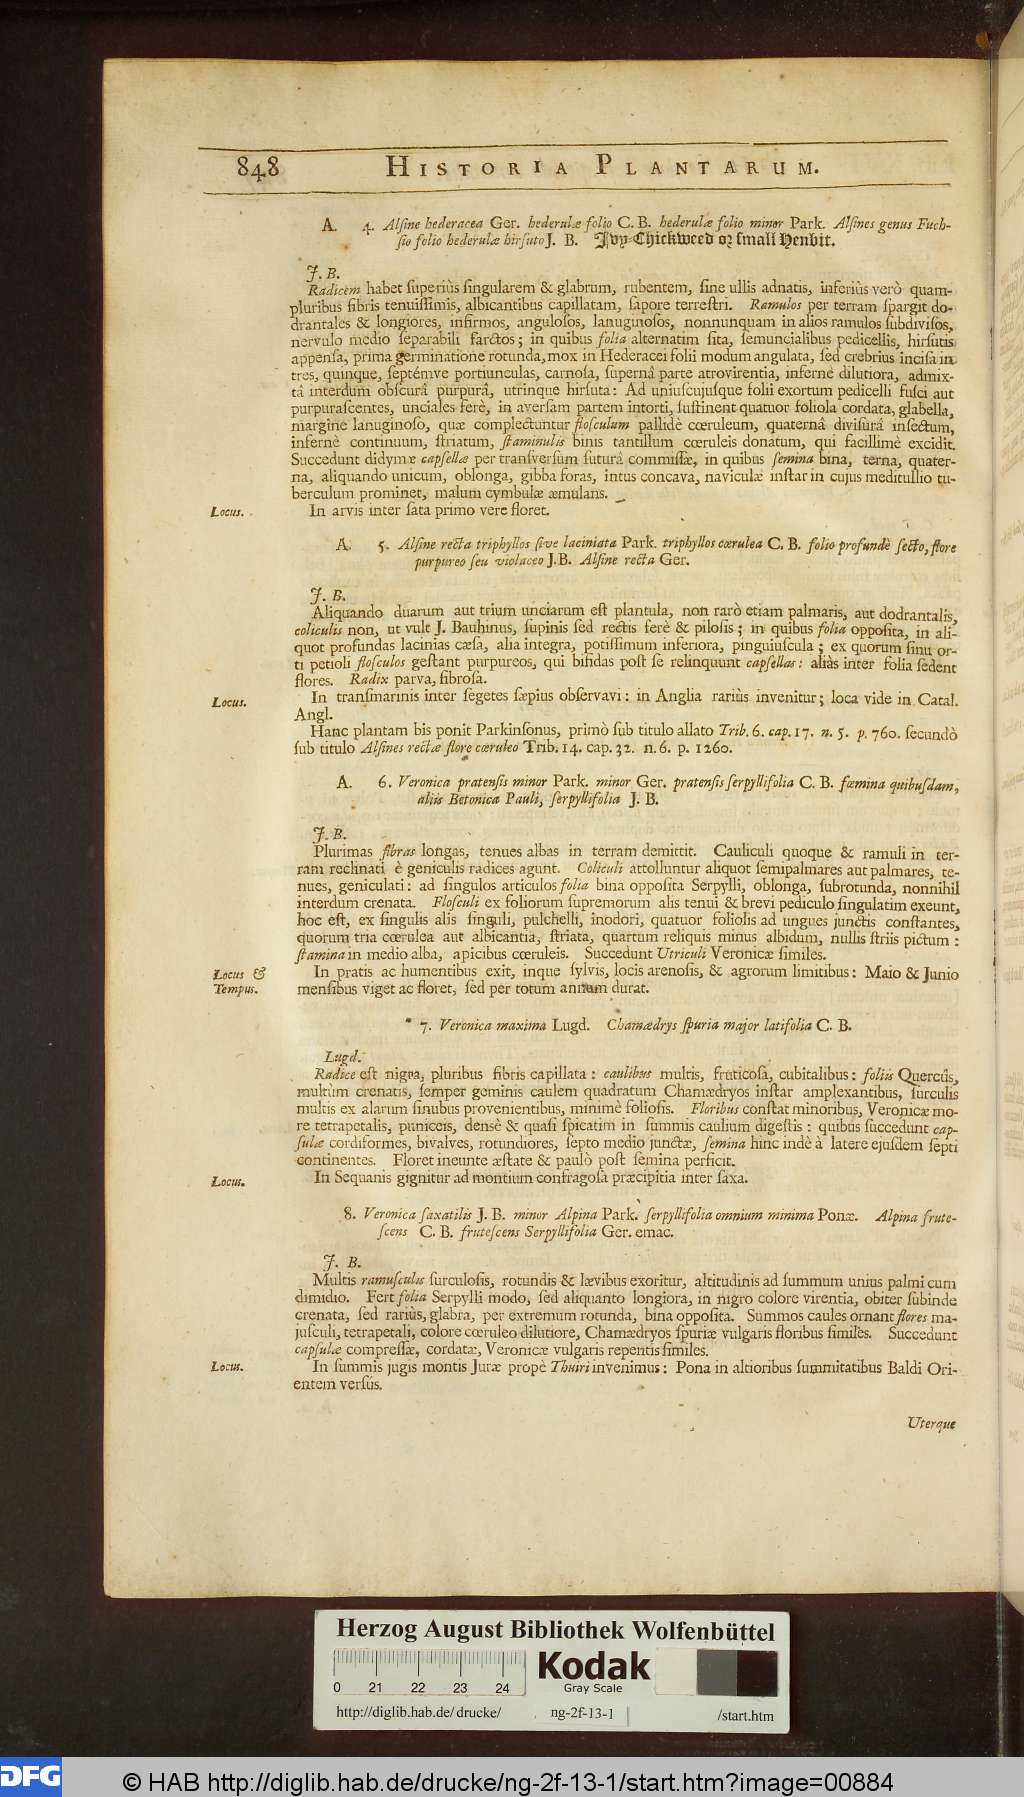 848 HISTORIA PLANTARUM.
A. 4. Alſine hederacea Ger. hederulæ folio C. B. hederulæ folio minor Park. Alſines genus Fuch-
ſio folio hederulæ hirſuto J. B. Ivy-Chickweed or ſmall Henbit.
J. B.
Radicem habet ſuperiùs ſingularem & glabrum, rubentem, ſine ullis adnatis, inferiùs verò quam-
pluribus fibris tenuiſſimis, albicantibus capillatam, ſapore terreſtri. Ramulos per terram ſpargit do-
drantales & longiores, infirmos, anguloſos, lanuginoſos, nonnunquam in alios ramulos ſubdiviſos,
nervulo medio ſeparabili farctos; in quibus folia alternatim ſita, ſemuncialibus pedicellis, hirſutis
appenſa, prima germinatione rotunda, mox in Hederacei folii modum angulata, ſed crebrius inciſa in
tres, quinque, ſeptémve portiunculas, carnoſa, ſupernâ parte atrovirentia, inferne dilutiora, admix-
tâ interdum obſcurâ purpurâ, utrinque hirſuta: Ad uniuſcujuſque folii exortum pedicelli fuſci aut
purpuraſcentes, unciales ferè, in averſam partem intorti, ſuſtinent quatuor foliola cordata, glabella,
margine lanuginoſo, quæ complectuntur floſculum pallidè cœruleum, quaternâ diviſurâ inſectum,
infernè continuum, ſtriatum, ſtaminulis binis tantillum cœruleis donatum, qui facillimè excidit.
Succedunt didymæ capſellæ per tranſverſum ſuturâ commiſſæ, in quibus ſemina bina, terna, quater-
na, aliquando unicum, oblonga, gibba foras, intus concava, naviculæ inſtar in cujus meditullio tu-
berculum prominet, malum cymbulæ æmulans.
Locus. In arvis inter ſata primo vere floret.
A. 5. Alſine recta triphyllos ſive laciniata Park. triphyllos cœrulea C. B. folio profundè ſecto, flore
purpureo ſeu violaceo J.B. Alſine recta Ger.
J. B.
Aliquando duarum aut trium unciarum eſt plantula, non rarò etiam palmaris, aut dodrantalis,
coliculis non, ut vult J. Bauhinus, ſupinis ſed rectis ferè & piloſis; in quibus folia oppoſita, in ali-
quot profundas lacinias cæſa, alia integra, potiſſimum inferiora, pinguiuſcula; ex quorum ſinu or-
ti petioli floſculos geſtant purpureos, qui bifidas poſt ſe relinquunt capſellas: aliàs inter folia ſedent
flores. Radix parva, fibroſa.
Locus. In tranſmarinis inter ſegetes ſæpius obſervavi: in Anglia rariùs invenitur; loca vide in Catal.
Angl.
Hanc plantam bis ponit Parkinſonus, primò ſub titulo allato Trib. 6. cap. 17. n. 5. p. 760. ſecundò
ſub titulo Alſines rectæ flore cœruleo Trib. 14. cap. 32. n. 6. p. 1260.
A. 6. Veronica pratenſis minor Park. minor Ger. pratenſis ſerpyllifolia C. B. fœmina quibuſdam,
aliis Betonica Pauli, ſerpyllifolia J. B.
J. B.
Plurimas fibras longas, tenues albas in terram demittit. Cauliculi quoque & ramuli in ter-
ram reclinati è geniculis radices agunt. Coliculi attolluntur aliquot ſemipalmares aut palmares, te-
nues, geniculati: ad ſingulos articulos folia bina oppoſita Serpylli, oblonga, ſubrotunda, nonnihil
interdum crenata. Floſculi ex foliorum ſupremorum alis tenui & brevi pediculo ſingulatim exeunt,
hoc eſt, ex ſingulis alis ſinguli, pulchelli, inodori, quatuor foliolis ad ungues junctis conſtantes,
quorum tria cœrulea aut albicantia, ſtriata, quartum reliquis minus albidum, nullis ſtriis pictum:
ſtamina in medio alba, apicibus cœruleis. Succedunt Utriculi Veronicæ ſimiles.
Locus & In pratis ac humentibus exit, inque ſylvis, locis arenoſis, & agrorum limitibus: Maio & Junio
Tempus. menſibus viget ac floret, ſed per totum annum durat.
* 7. Veronica maxima Lugd. Chamædrys ſpuria major latifolia C. B.
Lugd.
Radice eſt nigra, pluribus fibris capillata: caulibus multis, fruticoſa, cubitalibus: foliis Quercûs,
multùm crenatis, ſemper geminis caulem quadratum Chamædryos inſtar amplexantibus, ſurculis
multis ex alarum ſinubus provenientibus, minimè folioſis. Floribus conſtat minoribus, Veronicæ mo-
re tetrapetalis, puniceis, densè & quaſi ſpicatim in ſummis caulium digeſtis: quibus ſuccedunt cap-
ſulæ cordiformes, bivalves, rotundiores, ſepto medio junctæ, ſemina hinc indè à latere ejuſdem ſepti
continentes. Floret ineunte æſtate & paulò poſt ſemina perficit.
Locus. In Sequanis gignitur ad montium confragoſa præcipitia inter ſaxa.
8. Veronica ſaxatilis J. B. minor Alpina Park. ſerpyllifolia omnium minima Ponæ. Alpina frute-
ſcens C. B. fruteſcens Serpyllifolia Ger. emac.
J. B.
Multis ramuſculis ſurculoſis, rotundis & lævibus exoritur, altitudinis ad ſummum unius palmi cum
dimidio. Fert folia Serpylli modo, ſed aliquanto longiora, in nigro colore virentia, obiter ſubinde
crenata, ſed rariùs, glabra, per extremum rotunda, bina oppoſita. Summos caules ornant flores ma-
juſculi, tetrapetali, colore cœruleo dilutiore, Chamædryos ſpuriæ vulgaris floribus ſimiles. Succedunt
capſulæ compreſſæ, cordatæ, Veronicæ vulgaris repentis ſimiles.
Locus. In ſummis jugis montis Juræ propè Thuiri invenimus: Pona in altioribus ſummitatibus Baldi Ori-
entem verſùs.
Uterque
Herzog August Bibliothek Wolfenbüttel
0 21 22 23 24
Kodak
Gray Scale
http://diglib.hab.de/drucke/ ng-2f-13-1 /start.htm
DFG © HAB http://diglib.hab.de/drucke/ng-2f-13-1/start.htm?image=00884